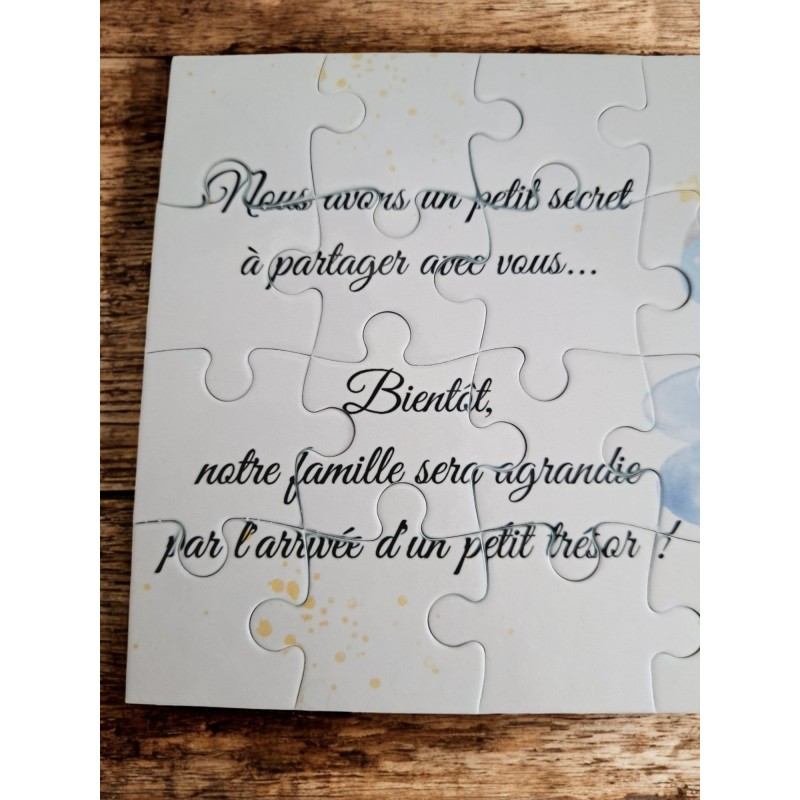 Nous avons un petit secret
à partager avec vous...
Bientôt,
notre famille sera agrandie
par l'arrivée d'un petit trésor !